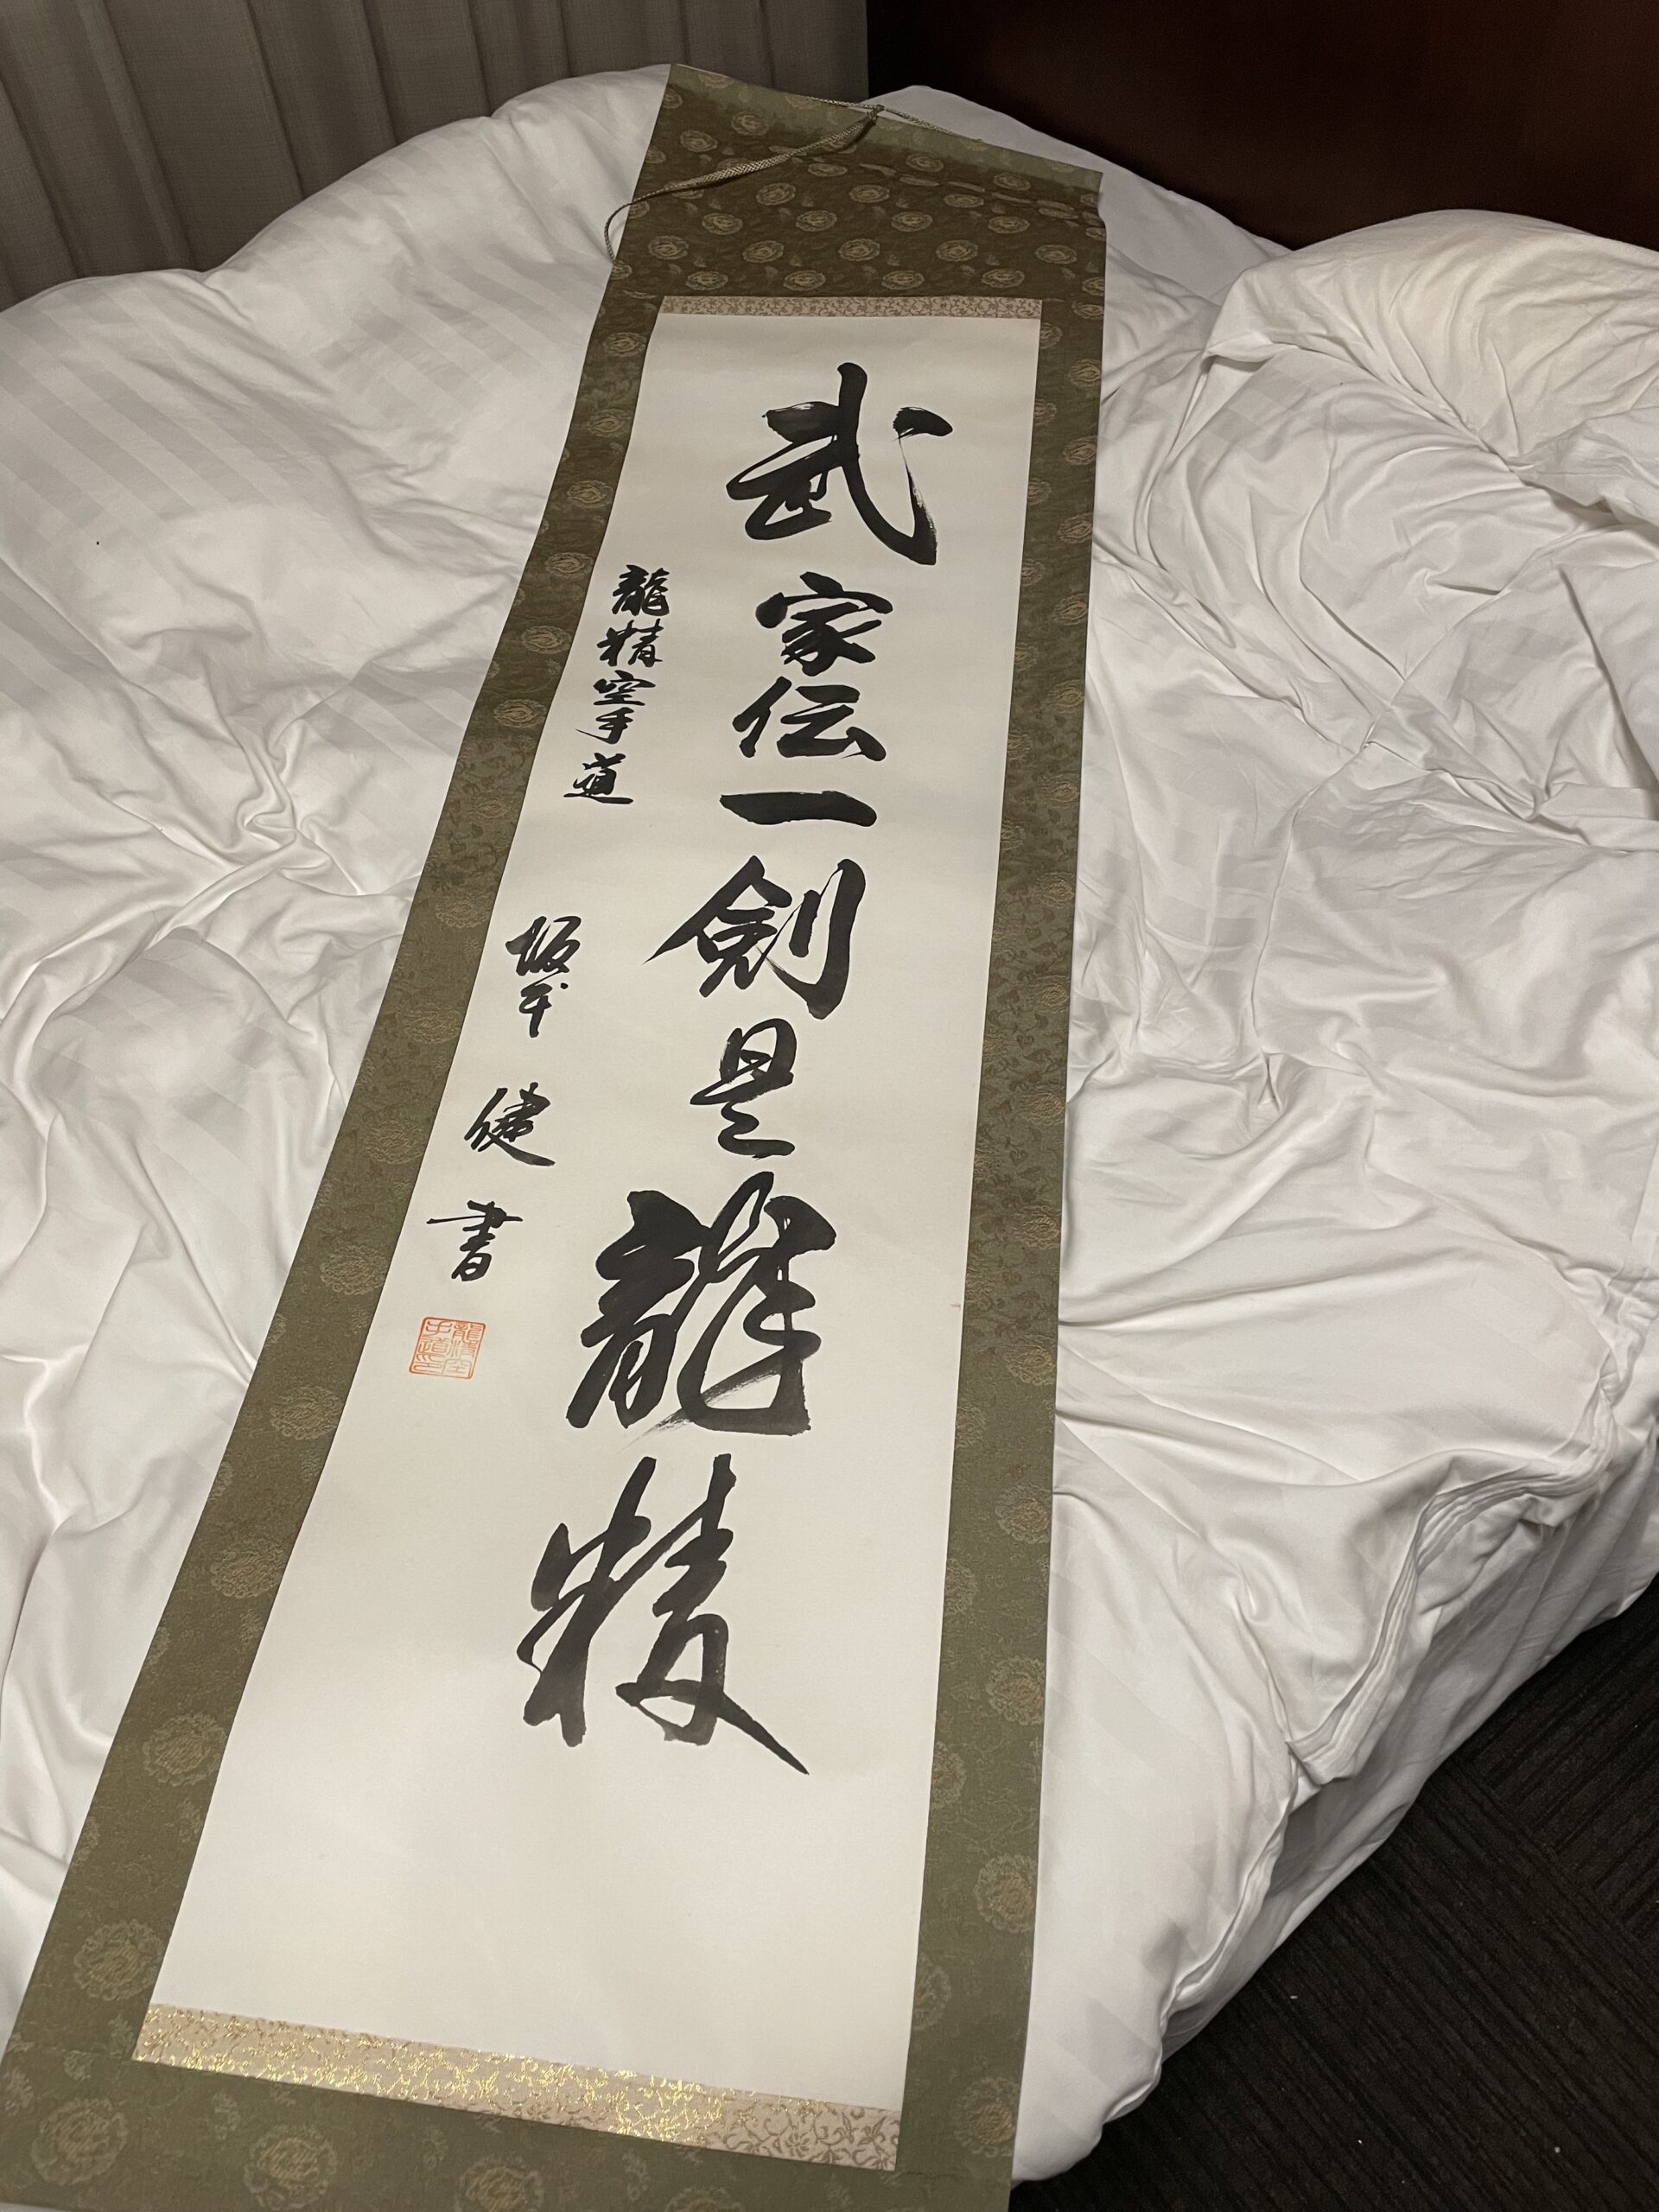 武家伝一剣是龍精
龍精空手道
坂本 健 書
龍精空手道之印